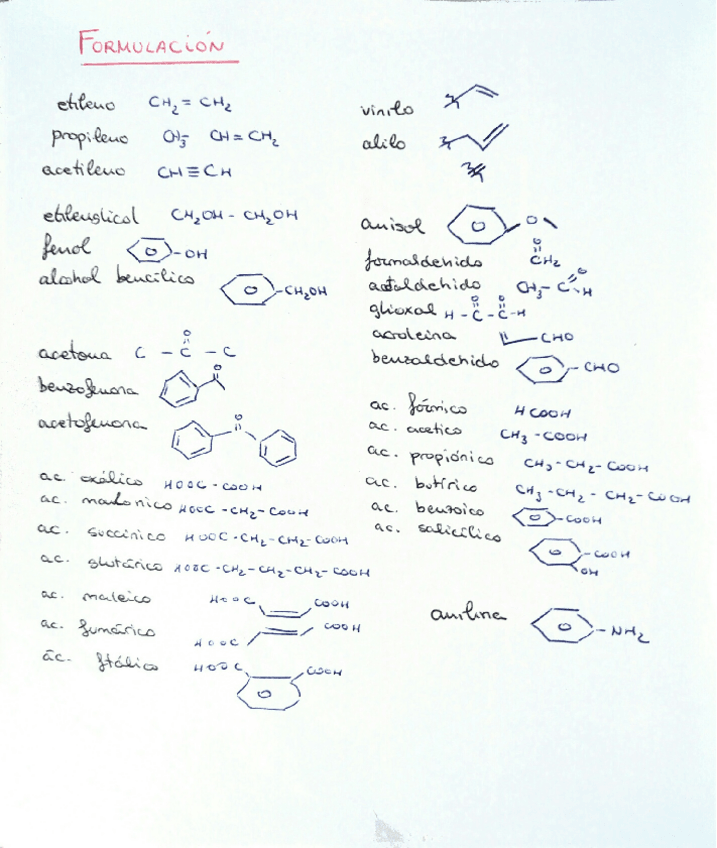 FORMULACIÓN
etileno CH2 = CH2
propileno CH3- CH = CH2
acetileno CH ≡ CH
etilenglicol CH2OH - CH2OH
fenol -OH
alcohol bencílico -CH2OH
acetona C - C - C
O
benzofenona O
acetofenona O
ac. oxálico HOOC - COOH
ac. malonico HOOC - CH2 - COOH
ac. succinico HOOC - CH2 - CH2 - COOH
ac. glutárico HOOC - CH2 - CH2 - CH2 - COOH
ac. maleico HOOC COOH
ac. fumárico HOOC COOH
ac. ftálico HOOC COOH
vinilo
alilo
anisol O
formaldehido O CH2
acetaldehido CH3 - C O H
glioxal H - C - C - H
O O
acroleina CHO
benzaldehido - CHO
ac. fórmico HCOOH
ac. acetico CH3 - COOH
ac. propiónico CH3 - CH2 - COOH
ac. butírico CH3 - CH2 - CH2 - COOH
ac. benzoico - COOH
ac. salicílico - COOH
OH
anilina - NH2